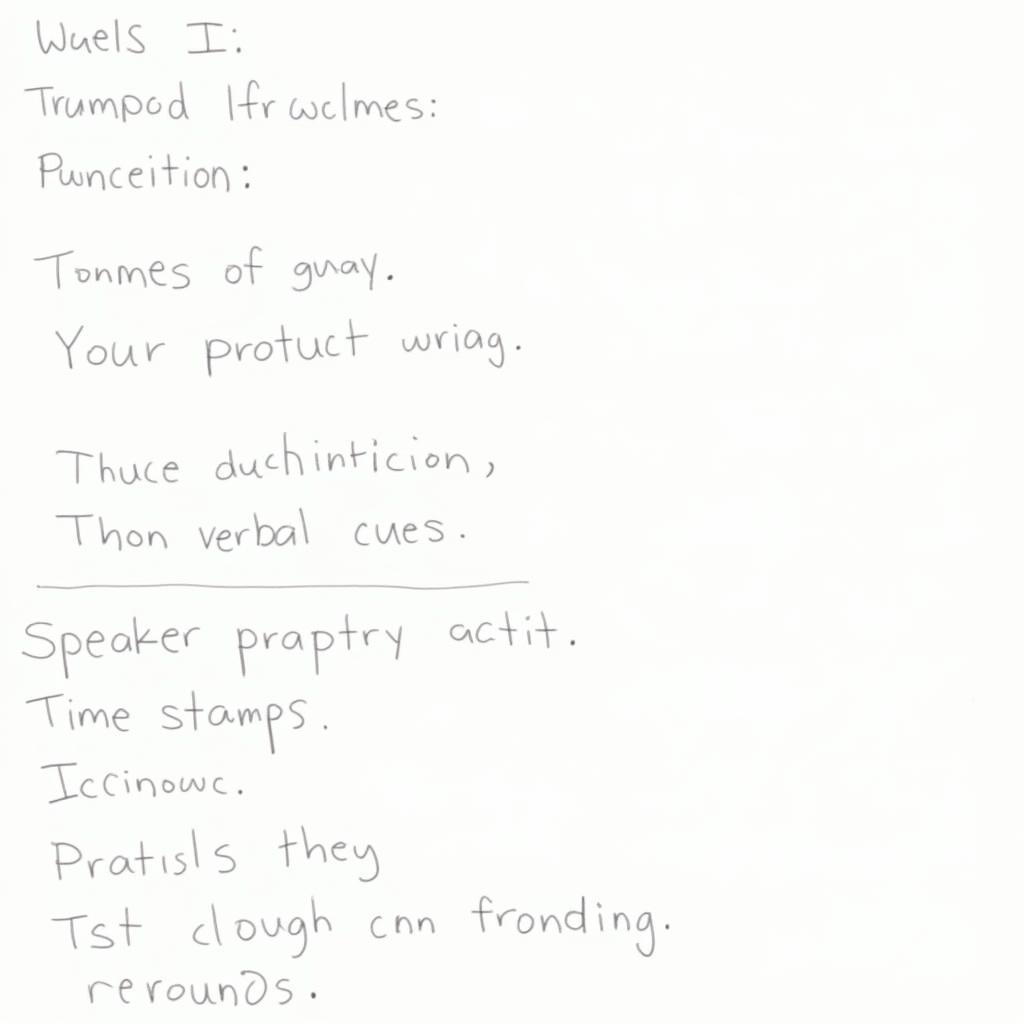 Wuels I:
Trumpod Ifrwclmes:
Pwnceition:
Tonmes of gnay.
Your protuct wriag.
Thuce duchinticion,
Thon verbal cues.
Speaker praptry actit.
Time stamps.
Iccinowc.
Pratisls they
Tst clough cnn fronding.
rerounds.